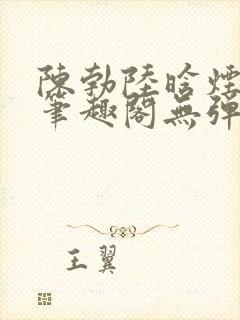 陳勃陸晗煙
筆趣閣無彈
王翼